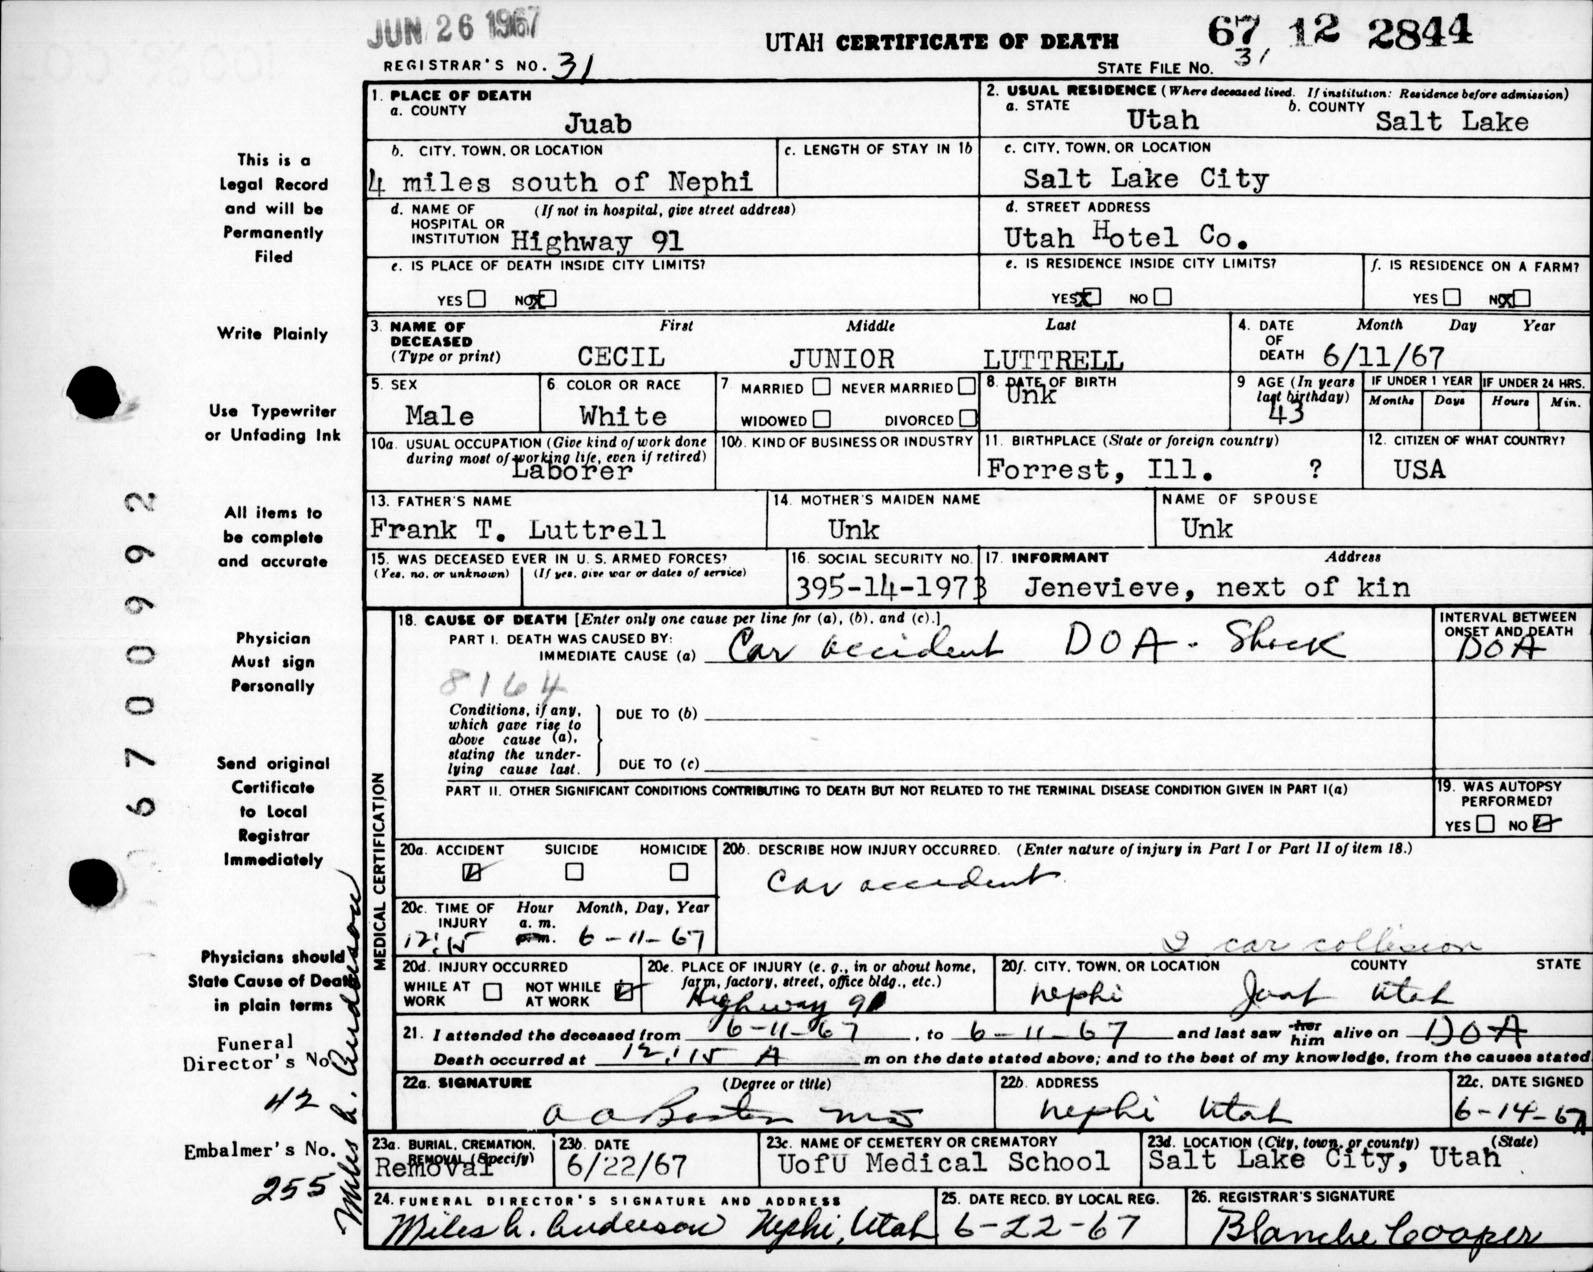 JUN 26 1967
UTAH CERTIFICATE OF DEATH
67 12 2844
REGISTRAR'S NO. 31
STATE FILE NO. 31
1. PLACE OF DEATH
a. COUNTY
Juab
2. USUAL RESIDENCE (Where deceased lived. If institution: Residence before admission)
a. STATE
Utah
b. COUNTY
Salt Lake
b. CITY, TOWN, OR LOCATION
4 miles south of Nephi
c. LENGTH OF STAY IN 1b
c. CITY, TOWN, OR LOCATION
Salt Lake City
d. NAME OF HOSPITAL OR INSTITUTION (If not in hospital, give street address)
Highway 91
d. STREET ADDRESS
Utah Hotel Co.
e. IS PLACE OF DEATH INSIDE CITY LIMITS?
YES NO X
e. IS RESIDENCE INSIDE CITY LIMITS?
YES X NO
f. IS RESIDENCE ON A FARM?
YES NO X
3. NAME OF DECEASED (Type or print)
First Middle Last
CECIL JUNIOR LUTTRELL
4. DATE OF DEATH
Month Day Year
6/11/67
5. SEX
Male
6 COLOR OR RACE
White
7 MARRIED NEVER MARRIED
WIDOWED DIVORCED
8. DATE OF BIRTH
Unk
9 AGE (In years last birthday)
43
IF UNDER 1 YEAR
Months Days
IF UNDER 24 HRS.
Hours Min.
10a. USUAL OCCUPATION (Give kind of work done during most of working life, even if retired)
Laborer
10b. KIND OF BUSINESS OR INDUSTRY
11. BIRTHPLACE (State or foreign country)
Forrest, Ill. ?
12. CITIZEN OF WHAT COUNTRY?
USA
13. FATHER'S NAME
Frank T. Luttrell
14. MOTHER'S MAIDEN NAME
Unk
NAME OF SPOUSE
Unk
15. WAS DECEASED EVER IN U. S. ARMED FORCES?
(Yes, no, or unknown) (If yes, give war or dates of service)
16. SOCIAL SECURITY NO.
395-14-1973
17. INFORMANT Address
Jenevieve, next of kin
18. CAUSE OF DEATH [Enter only one cause per line for (a), (b), and (c).]
PART I. DEATH WAS CAUSED BY:
IMMEDIATE CAUSE (a) Car accident DOA - Shock
INTERVAL BETWEEN ONSET AND DEATH
DOA
8164
Conditions, if any, which gave rise to above cause (a), stating the underlying cause last.
DUE TO (b)
DUE TO (c)
PART II. OTHER SIGNIFICANT CONDITIONS CONTRIBUTING TO DEATH BUT NOT RELATED TO THE TERMINAL DISEASE CONDITION GIVEN IN PART I(a)
19. WAS AUTOPSY PERFORMED?
YES NO
MEDICAL CERTIFICATION
20a. ACCIDENT SUICIDE HOMICIDE
20b. DESCRIBE HOW INJURY OCCURRED. (Enter nature of injury in Part I or Part II of item 18.)
Car accident
2 car collision
20c. TIME OF INJURY
Hour Month, Day, Year
a. m.
p. m.
12:15 6-11-67
20d. INJURY OCCURRED
WHILE AT WORK NOT WHILE AT WORK
20e. PLACE OF INJURY (e. g., in or about home, farm, factory, street, office bldg., etc.)
Highway 91
20f. CITY, TOWN, OR LOCATION COUNTY STATE
Nephi Juab Utah
21. I attended the deceased from 6-11-67, to 6-11-67 and last saw her him alive on DOA
Death occurred at 12:15 A m on the date stated above; and to the best of my knowledge, from the causes stated.
22a. SIGNATURE (Degree or title)
22b. ADDRESS
Nephi Utah
22c. DATE SIGNED
6-14-67
23a. BURIAL, CREMATION, REMOVAL (Specify)
Removal
23b. DATE
6/22/67
23c. NAME OF CEMETERY OR CREMATORY
UofU Medical School
23d. LOCATION (City, town, or county) (State)
Salt Lake City, Utah
24. FUNERAL DIRECTOR'S SIGNATURE AND ADDRESS
Miles A. Anderson Nephi, Utah
25. DATE RECD. BY LOCAL REG.
6-22-67
26. REGISTRAR'S SIGNATURE
Blanche Cooper
This is a
Legal Record
and will be
Permanently
Filed
Write Plainly
Use Typewriter
or Unfading Ink
All items to
be complete
and accurate
Physician
Must sign
Personally
Send original
Certificate
to Local
Registrar
Immediately
Physicians should
State Cause of Death
in plain terms
Funeral
Director's No.
42
Embalmer's No.
255
Miles A. Anderson
6700992